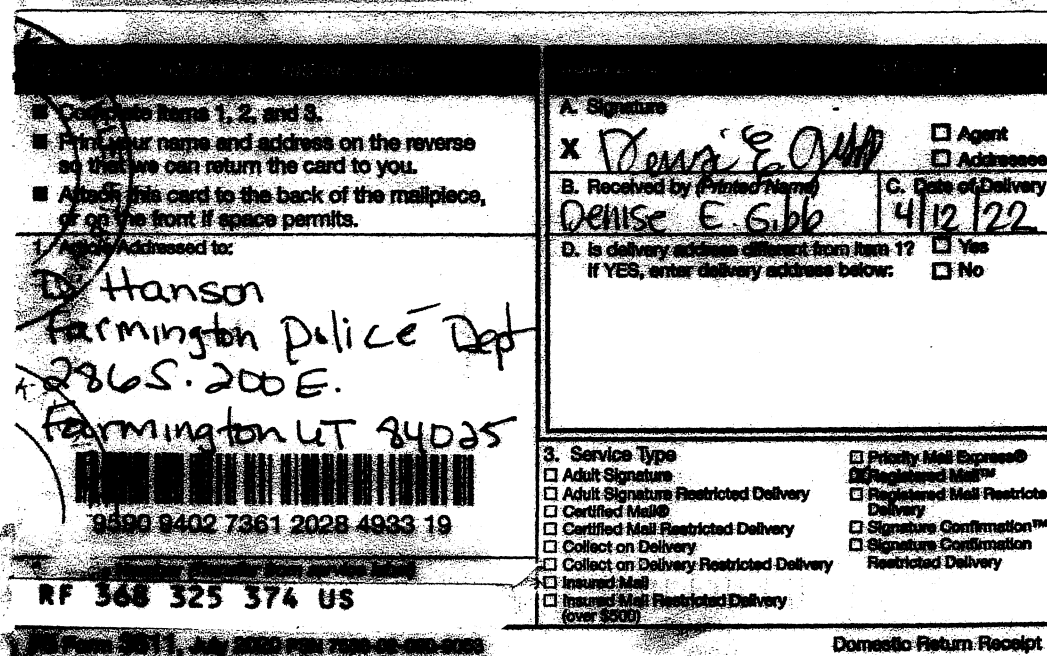 ■ Complete items 1, 2, and 3.
■ Print your name and address on the reverse
so that we can return the card to you.
■ Attach this card to the back of the mailpiece,
or on the front if space permits.
1. Article Addressed to:
Hanson
Farmington Police Dept
286 S. 200 E.
Farmington UT 84025
9590 9402 7361 2028 4933 19
RF 368 325 374 US
PS Form 3811, July 2020 PSN
A. Signature
X
☐ Agent
☐ Addressee
B. Received by (Printed Name)
Denise E. Gibb
C. Date of Delivery
4/12/22
D. Is delivery address different from item 1? ☐ Yes
If YES, enter delivery address below: ☐ No
3. Service Type
☐ Adult Signature
☐ Adult Signature Restricted Delivery
☐ Certified Mail®
☐ Certified Mail Restricted Delivery
☐ Collect on Delivery
☐ Collect on Delivery Restricted Delivery
☐ Insured Mail
☐ Insured Mail Restricted Delivery
(over $500)
☐ Priority Mail Express®
☒ Registered Mail™
☐ Registered Mail Restricted
Delivery
☐ Signature Confirmation™
☐ Signature Confirmation
Restricted Delivery
Domestic Return Receipt